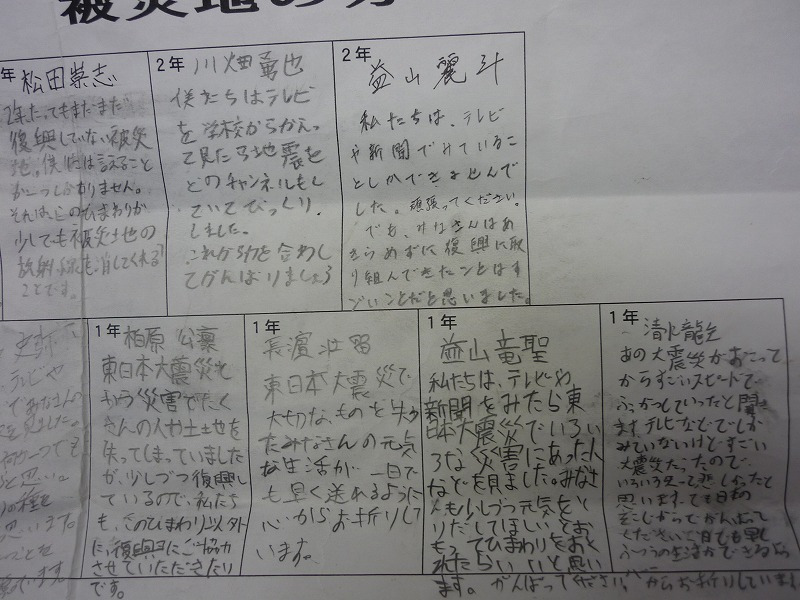 被災地の方
年 松田崇志
2年たってもまだまだ
復興していない被災
地。僕には言えること
が一つしかありません。
それは、このひまわりが
少しでも被災土地の
放射線を消してくれる
ことです。
2年 川畑勇也
僕たちはテレビ
を学校からかえっ
て見たら地震を
どのチャンネルもし
ていてびっくり
しました。
これから力を合わし
てがんばりましょう
2年 益山麗斗
私たちは、テレビ
や新聞でみているこ
としかできませんで
した。頑張ってください。
でも、みなさんはあ
きらめずに復興に取
り組んできたことはす
ごいことだと思いました。
テレビや
でみなさんの
を見ました。
の種を
思います。
1年 柏原 公
東日本大震災と
いう災害でたく
さんの人や土地を
失ってしまっていました
が、少しづつ復興し
ているので、私たち
も、このひまわり以外
に、復興にご協力
させていただきたい
です。
1年 長濵壮
東日本大震災で
大切なものを失っ
たみなさんの元気
な生活が一日で
も早く送れるように
心からお祈りして
います。
1年 益山竜聖
私たちは、テレビや、
新聞をみたら東
日本大震災でいろい
ろな災害にあった人
などを見ました。みなさ
んも少しづつ元気をと
りだしてほしいとお
もってひまわりをおく
れたらいいと思い
ます。がんばってください。
1年 清水龍
あの大震災がおこって
からすごいスピードで
ふっかつしていったと聞き
ます。テレビなどでしか
みていないけどすごい
大震災だったので、
いろいろ失って悲しかったと
思います。でも日本の
そこじからでがんばって
ください。1日でも早く
ふつうの生活ができるよう
心からお祈りしています